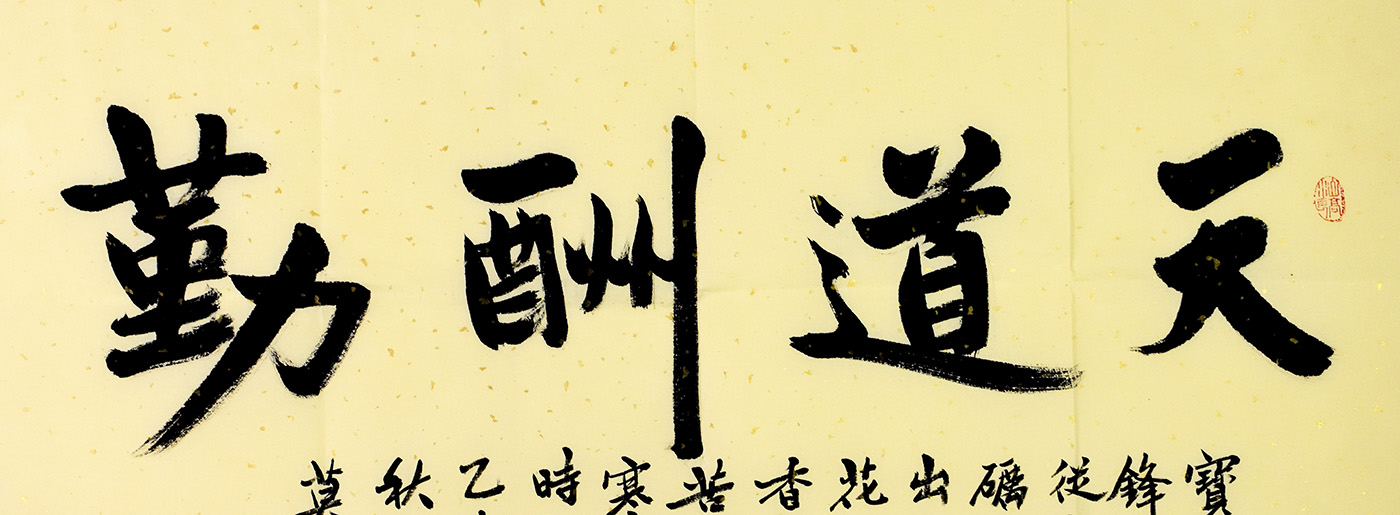 天道酬勤
寶鋒從礪出花香苦寒時乙秋莫